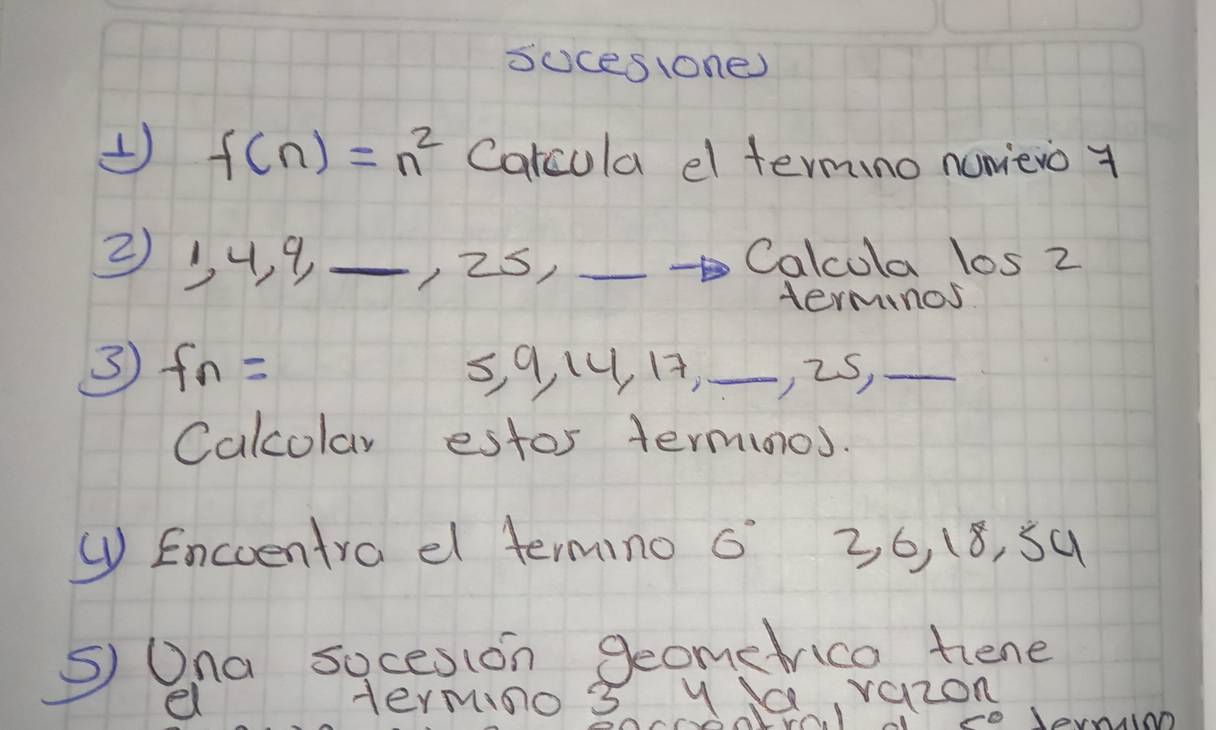 sucesiones
1) f(n) = n² Calcula el termino numero 7
2) 1, 4, 9, __, 25, __ → Calcula los 2
terminos.
3) fn = 5, 9, 14, 17, __, 25, __
Calcular estos terminos.
4) Encuentra el termino 6° 2, 6, 18, 54
5) Una sucesión geometrica tiene
el termino 3 y la razon
5° termino